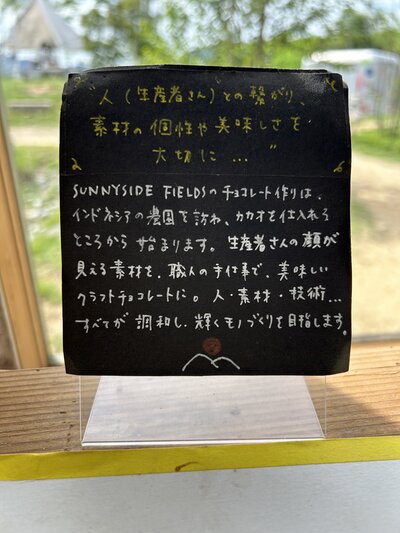 "人(生産者さん)との繋がり、
素材の個性や美味しさを
大切に..."
SUNNYSIDE FIELDSのチョコレート作りは、
インドネシアの農園を訪ね、カカオを仕入れる
ところから始まります。生産者さんの顔が
見える素材を、職人の手仕事で、美味しい
クラフトチョコレートに。人・素材・技術...
すべてが調和し、輝くモノづくりを目指します。